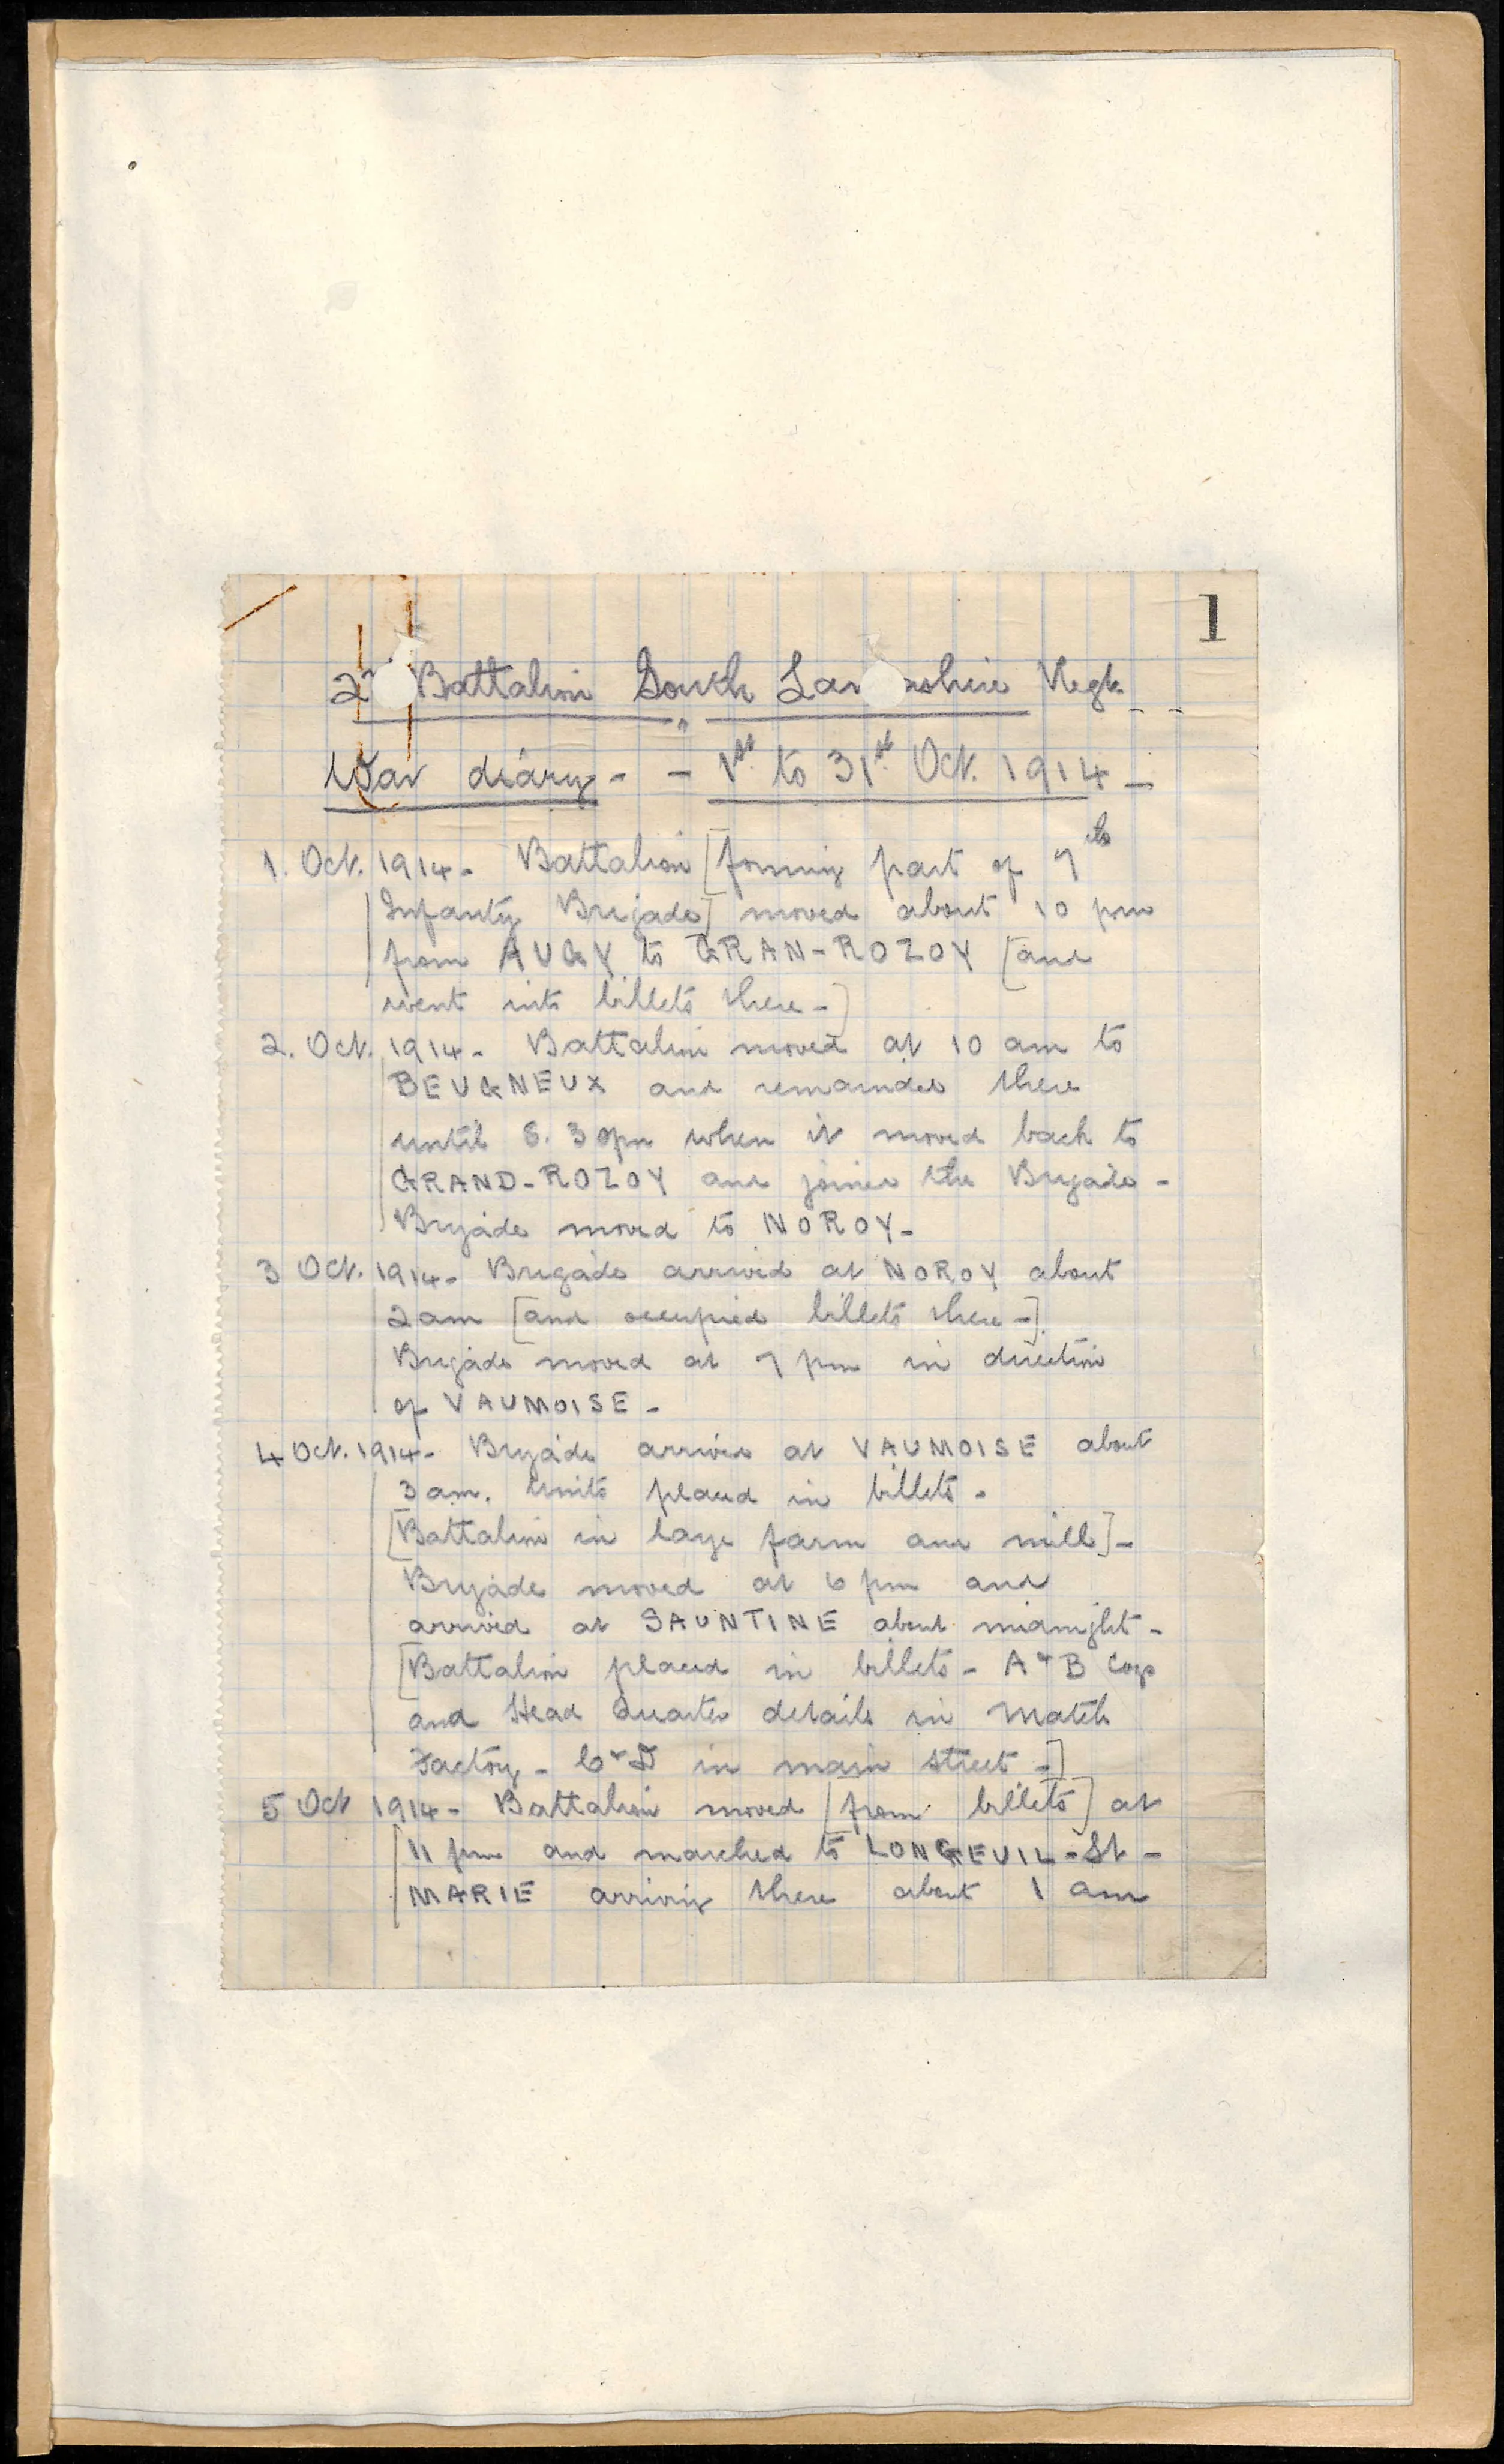 1
2n Battalion South Lan ashire Regt. - -
War diary - - 1st to 31st Oct. 1914 -
1. Oct. 1914 - Battalion [forming part of 7th
Infantry Brigade] moved about 10 pm
from AUGY to GRAN-ROZOY [and
went into billets there -]
2. Oct. 1914 - Battalion moved at 10 am to
BEUGNEUX and remained there
until 8.30pm when it moved back to
GRAND-ROZOY and joined the Brigade -
Brigade moved to NOROY -
3 Oct. 1914 - Brigade arrived at NOROY about
2am [and occupied billets there -]
Brigade moved at 7 pm in direction
of VAUMOISE -
4 Oct. 1914 - Brigade arrived at VAUMOISE about
3 am. Units placed in billets -
[Battalion in large farm and mill] -
Brigade moved at 6 pm and
arrived at SAUNTINE about midnight -
[Battalion placed in billets - A & B Coys
and Head Quarter details in Match
Factory - C & D in main street -]
5 Oct 1914 - Battalion moved [from billets] at
11 pm and marched to LONGEUIL - St -
MARIE arriving there about 1 am